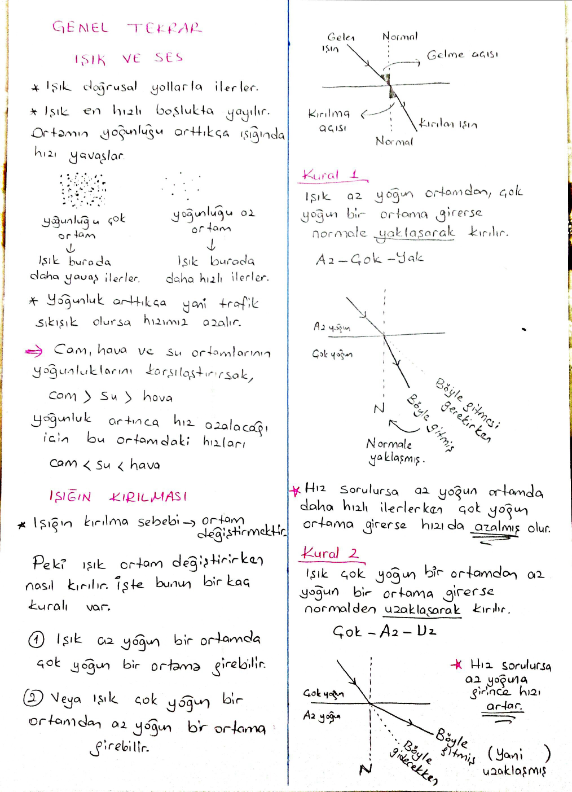 GENEL TEKRAR
IŞIK VE SES
* Işık doğrusal yollarla ilerler.
* Işık en hızlı boşlukta yayılır.
Ortamın yoğunluğu arttıkça ışığında
hızı yavaşlar
yoğunluğu çok
ortam
↓
Işık burada
daha yavaş ilerler.
yoğunluğu az
ortam
↓
Işık burada
daha hızlı ilerler.
* Yoğunluk arttıkça yani trafik
sıkışık olursa hızımız azalır.
⇒ Cam, hava ve su ortamlarının
yoğunluklarını karşılaştırırsak,
cam > su > hava
yoğunluk artınca hız azalacağı
için bu ortamdaki hızları
cam < su < hava
IŞIĞIN KIRILMASI
* Işığın kırılma sebebi → ortam
değiştirmektir.
Peki ışık ortam değiştirirken
nasıl kırılır. İşte bunun bir kaç
kuralı var.
① Işık az yoğun bir ortamda
çok yoğun bir ortama girebilir.
② Veya ışık çok yoğun bir
ortamdan az yoğun bir ortama
girebilir.
Gelen
ışın
Normal
Gelme açısı
Kırılma
açısı
Kırılan ışın
Normal
Kural 1
Işık az yoğun ortamdan, çok
yoğun bir ortama girerse
normale yaklaşarak kırılır.
Az - Çok - Yak
Az yoğun
Çok yoğun
Böyle gitmesi
gerekirken
Böyle gitmiş
N
Normale
yaklaşmış.
* Hız sorulursa az yoğun ortamda
daha hızlı ilerlerken çok yoğun
ortama girerse hızıda azalmış olur.
Kural 2
Işık çok yoğun bir ortamdan az
yoğun bir ortama girerse
normalden uzaklaşarak kırılır.
Çok - Az - Uz
* Hız sorulursa
az yoğuna
girince hızı
artar.
Çok yoğun
Az yoğun
Böyle
gitmiş
(Yani
uzaklaşmış)
Böyle
gidecekken
N